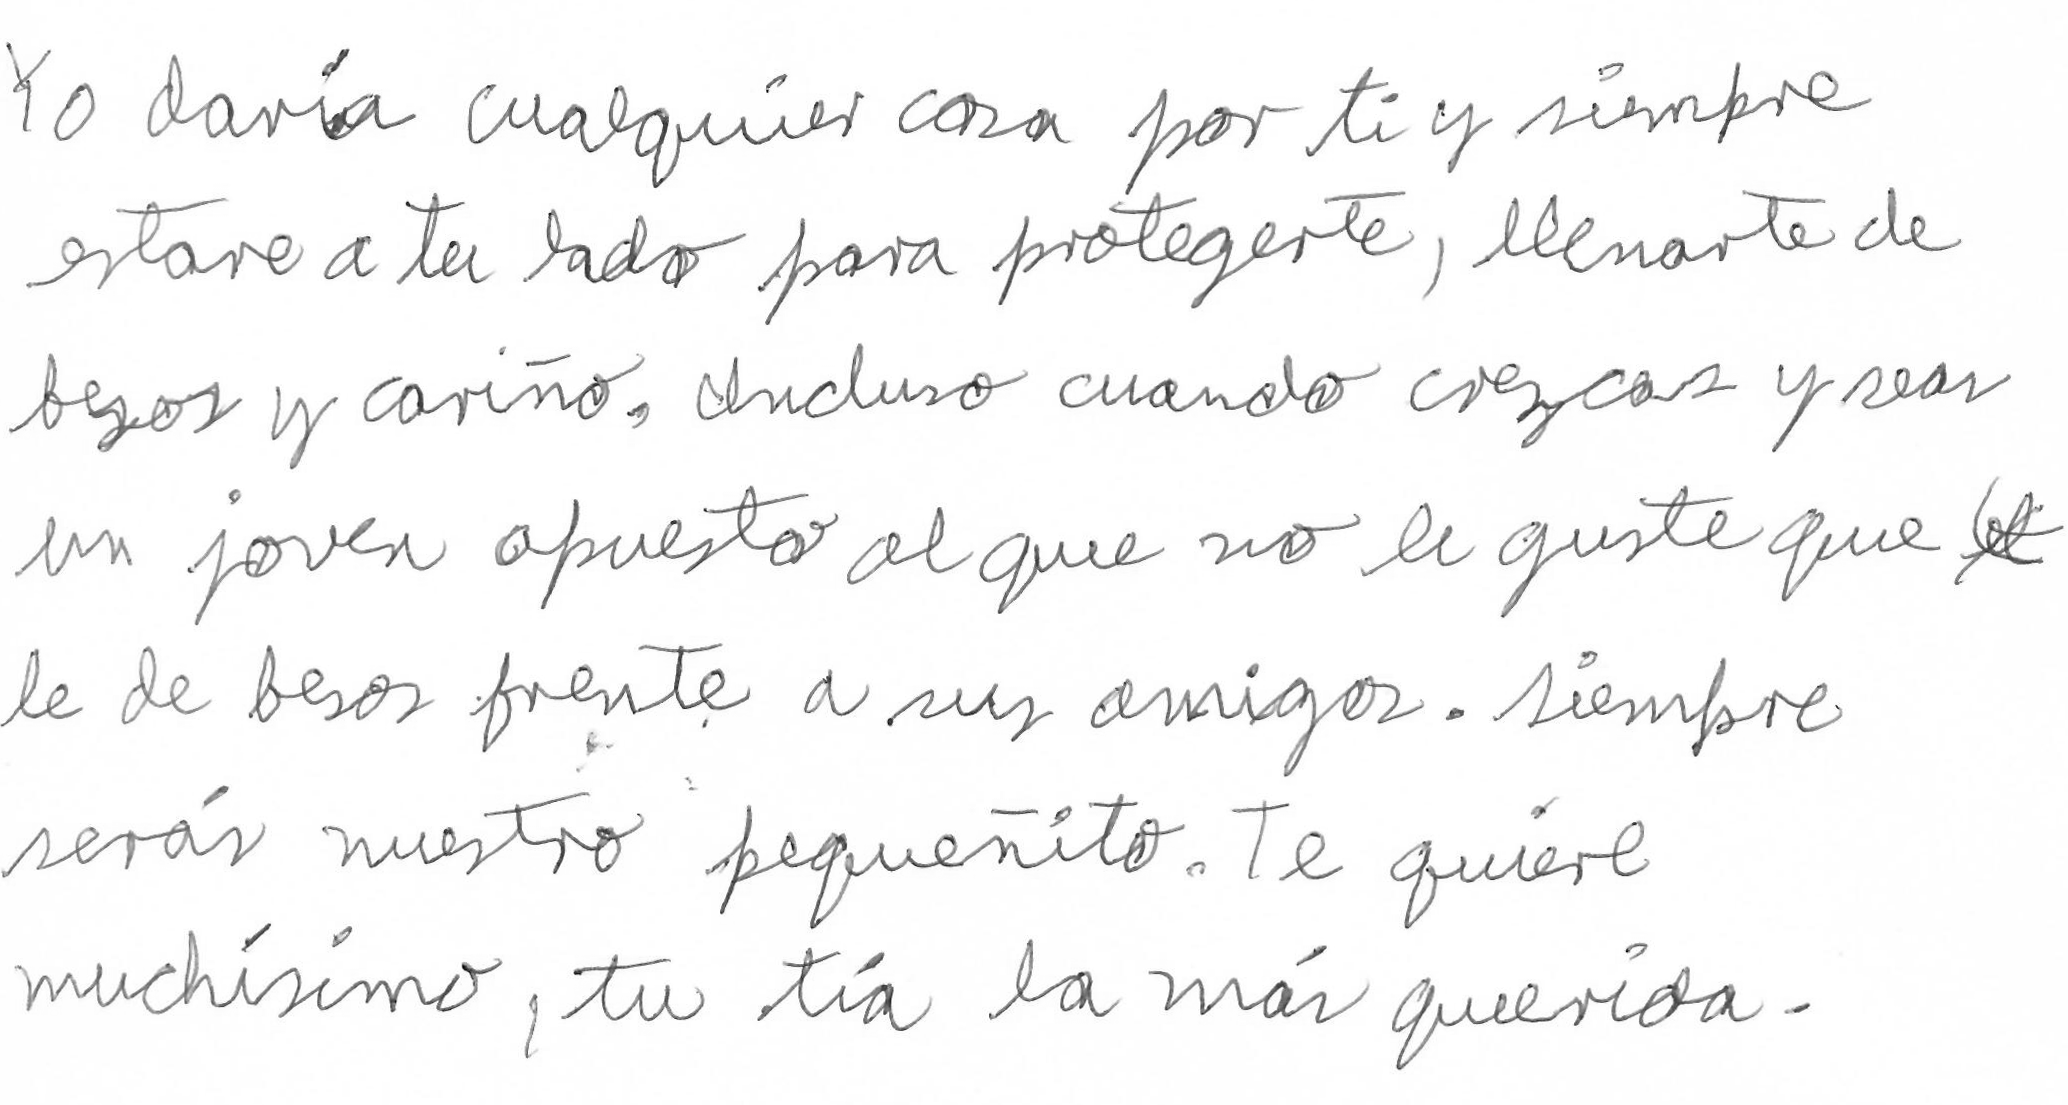 Yo daría cualquier cosa por ti y siempre
estare a tu lado para protegerte, llenarte de
besos y cariño. Incluso cuando crezcas y seas
un joven apuesto al que no le guste que
le de besos frente a sus amigos. siempre
serás nuestro pequeñito. Te quiere
muchísimo, tu tía la más querida.